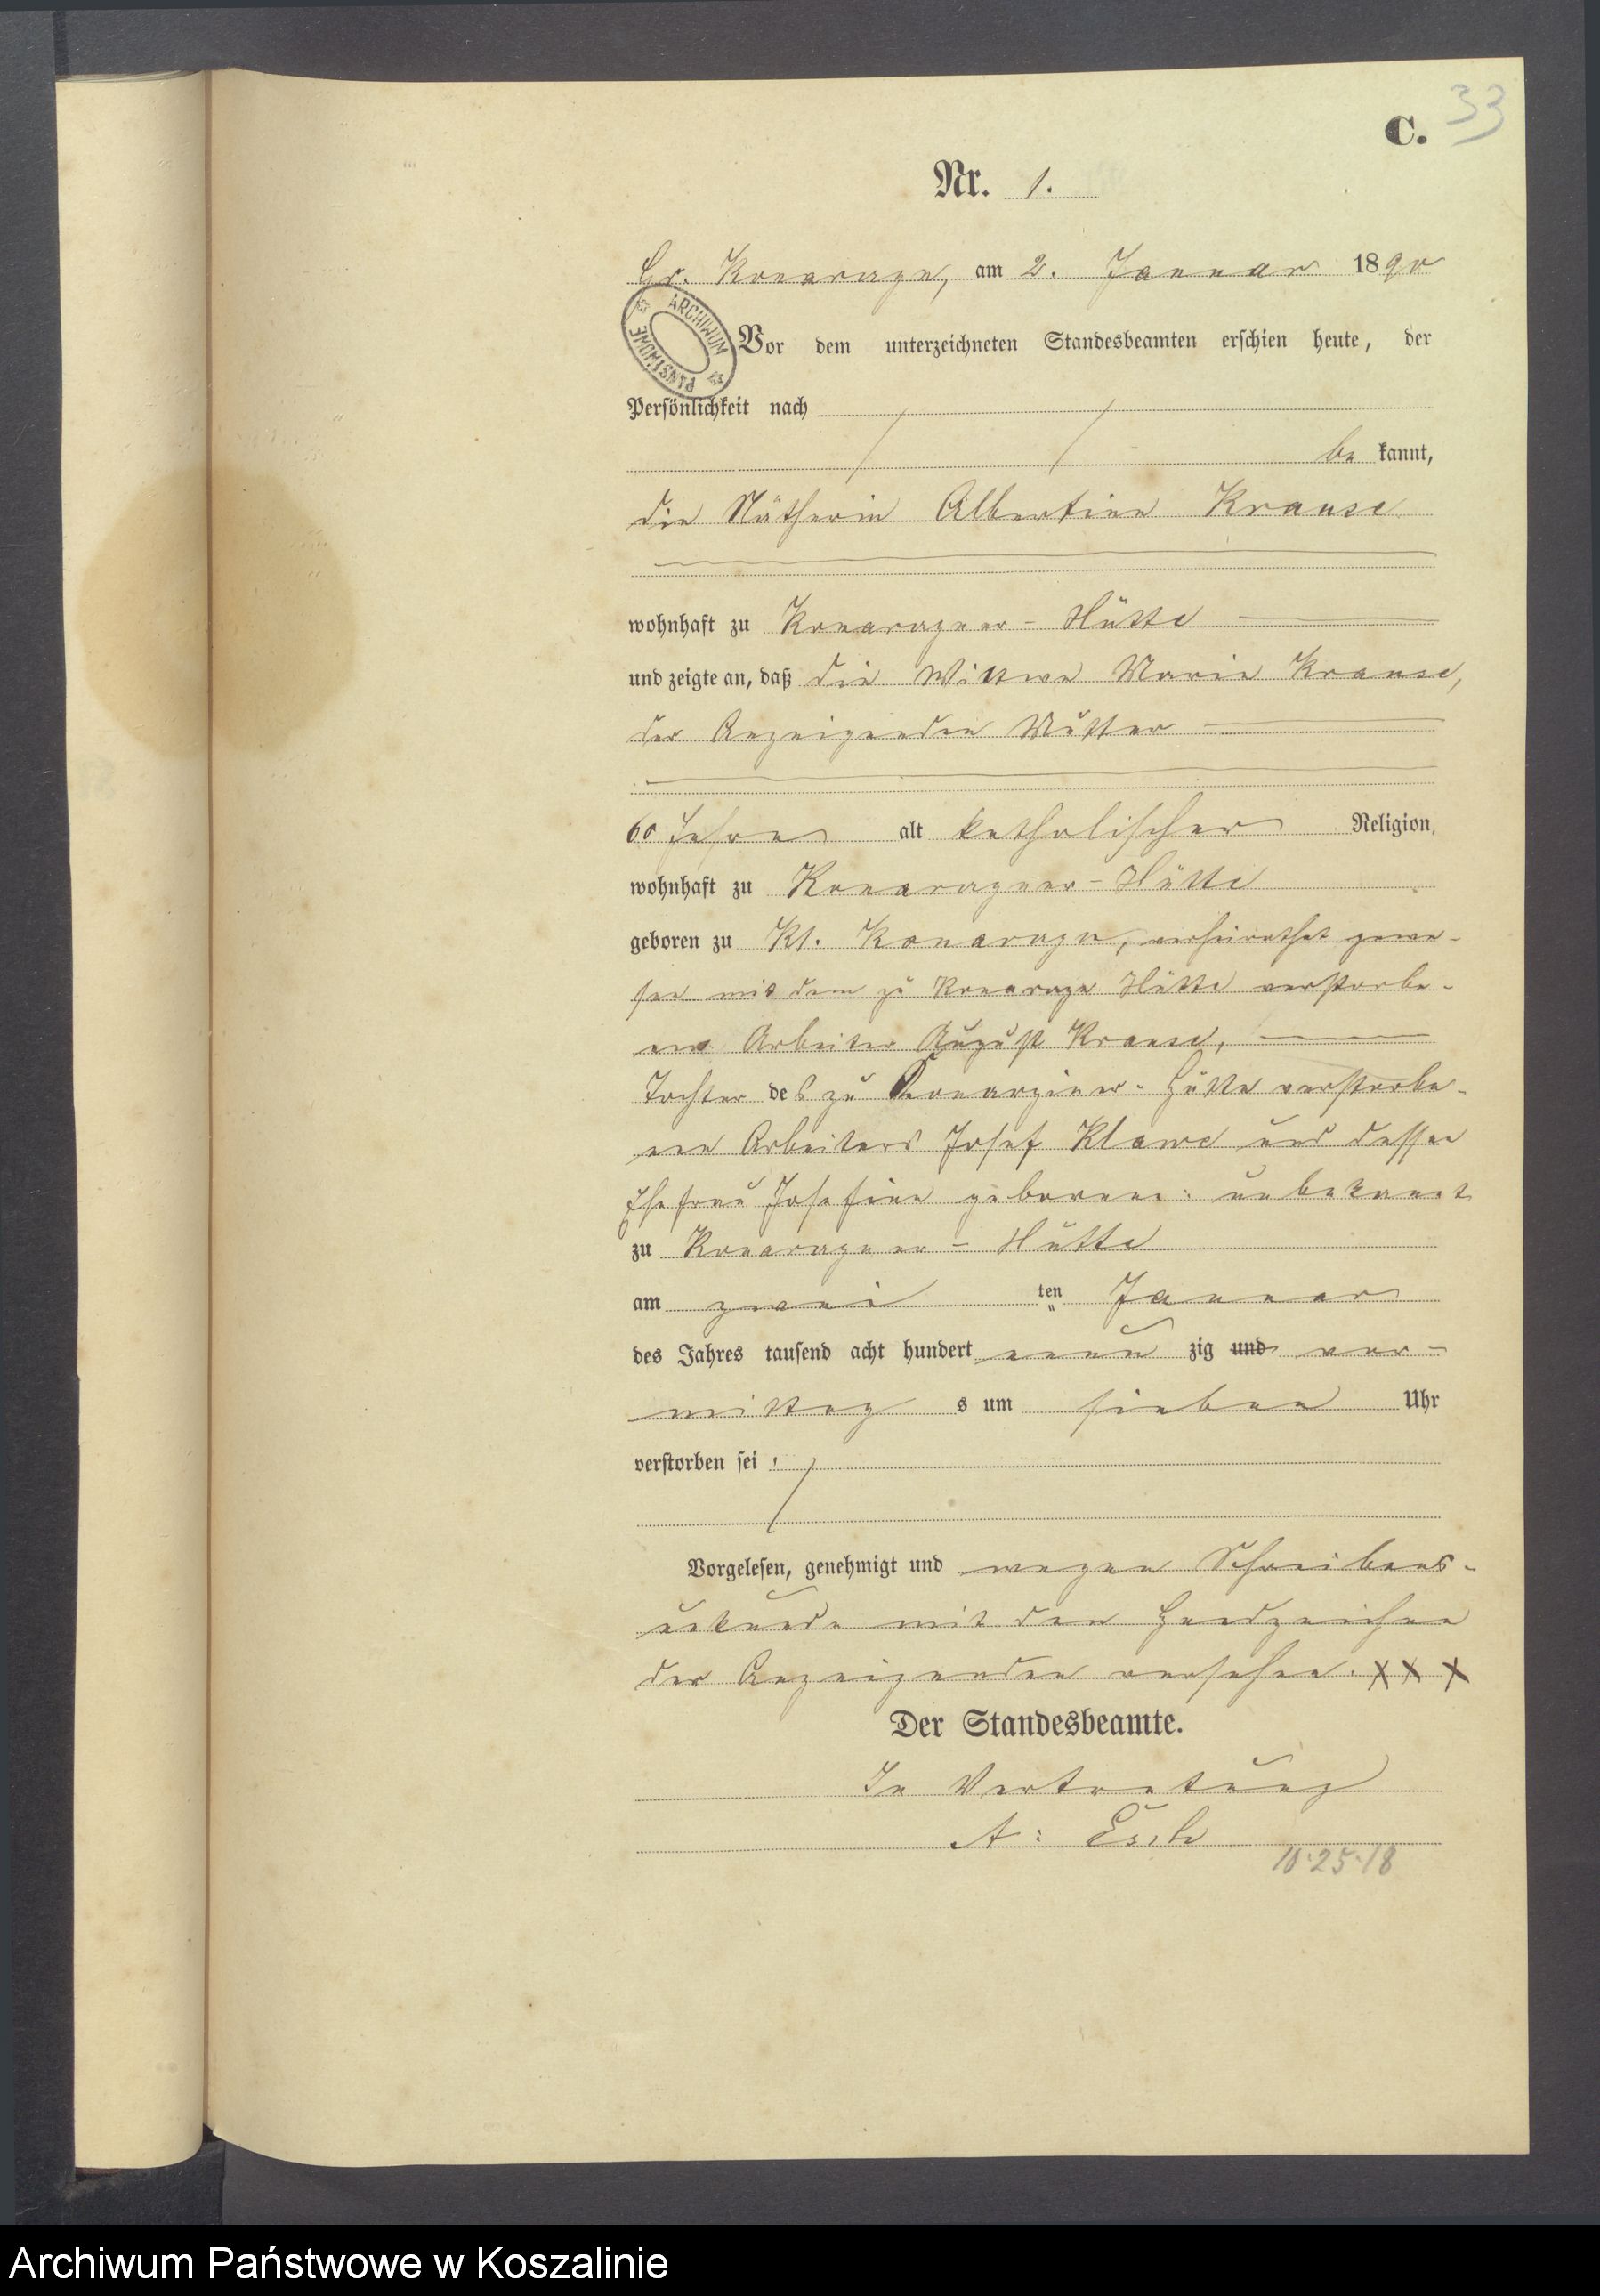 33
C.
Nr. 1.
Gr. Konarczyn, am 2. Januar 1890
ARCHIWUM PAŃSTWOWE
Vor dem unterzeichneten Standesbeamten erschien heute, der
Persönlichkeit nach
be kannt,
die Nätherin Albertine Krause
wohnhaft zu Konarczyner-Hütte
und zeigte an, daß die Wittwe Marie Krause,
der Anzeigenden Mutter
60 Jahre alt katholischer Religion,
wohnhaft zu Konarczyner-Hütte
geboren zu Kl. Konarczyn, verheirathet gewe-
sen mit dem zu Konarczyn Hütte verstorbe-
nen Arbeiter August Krause,
Tochter des zu Konarziner-Hütte verstorbe-
nen Arbeiters Josef Klawe und dessen
Ehefrau Josefine geborene: unbekannt
zu Konarczyner-Hütte
am zwei ten Januar
des Jahres tausend acht hundert neun zig und vor-
mittag s um sieben Uhr
verstorben sei.
Vorgelesen, genehmigt und wegen Schreibens-
unkunde mit den Handzeichen
der Anzeigenden versehen. X X X
Der Standesbeamte.
In Vertretung
A: Esch
18·25·18
Archiwum Państwowe w Koszalinie